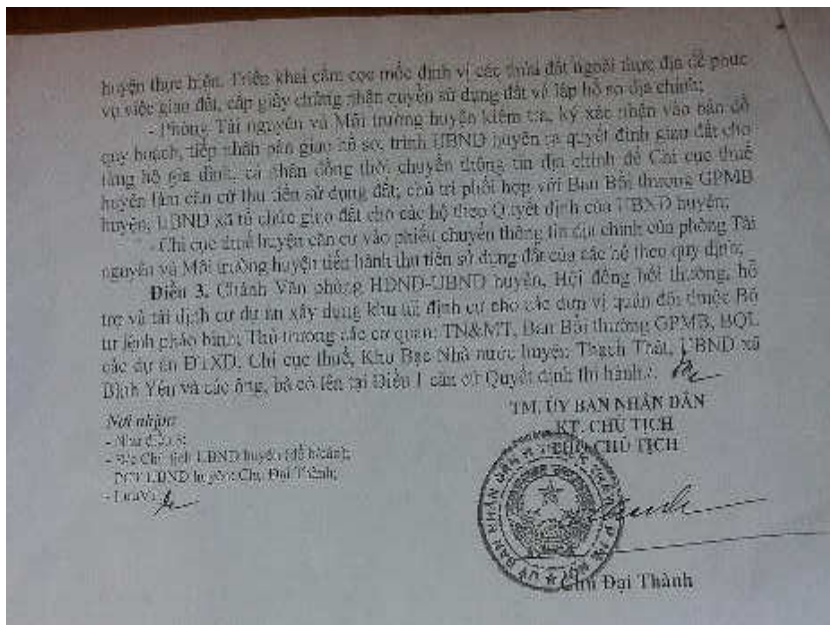 huyện thực hiện. Triển khai cắm cọc mốc định vị các thửa đất ngoài thực địa để phục
vụ việc giao đất, cấp giấy chứng nhận quyền sử dụng đất và lập hồ sơ địa chính;
- Phòng Tài nguyên và Môi trường huyện kiểm tra, ký xác nhận vào bản đồ
quy hoạch, tiếp nhận bàn giao hồ sơ, trình UBND huyện ra quyết định giao đất cho
từng hộ gia đình, cá nhân đồng thời chuyển thông tin địa chính để Chi cục thuế
huyện làm căn cứ thu tiền sử dụng đất; chủ trì phối hợp với Ban Bồi thường GPMB
huyện, UBND xã tổ chức giao đất cho các hộ theo Quyết định của UBND huyện;
- Chi cục thuế huyện căn cứ vào phiếu chuyển thông tin địa chính của phòng Tài
nguyên và Môi trường huyện tiến hành thu tiền sử dụng đất của các hộ theo quy định;
Điều 3. Chánh Văn phòng HĐND-UBND huyện, Hội đồng bồi thường, hỗ
trợ và tái định cư dự án xây dựng khu tái định cư cho các đơn vị quân đội thuộc Bộ
tư lệnh pháo binh; Thủ trưởng các cơ quan: TN&MT, Ban Bồi thường GPMB, BQL
các dự án ĐTXD, Chi cục thuế, Kho Bạc Nhà nước huyện Thạch Thất, UBND xã
Bình Yên và các ông, bà có tên tại Điều 1 căn cứ Quyết định thi hành./.
Nơi nhận:
- Như điều 3;
- Chủ tịch UBND huyện (để b/cáo);
- PCT UBND huyện: Chu Đại Thành;
- Lưu
TM. ỦY BAN NHÂN DÂN
KT. CHỦ TỊCH
PHÓ CHỦ TỊCH
ỦY BAN NHÂN DÂN
Chu Đại Thành